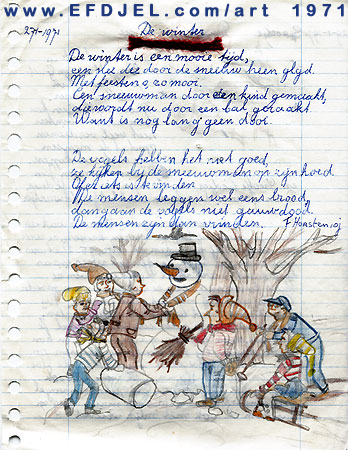 www.EFDJEL.com/art 1971
De winter
271-1971
De winter is een mooie tijd,
een slee die door de sneeuw heen glyd.
Met feesten o, zo mooi.
Een sneeuwman door een kind gemaakt,
die wordt nu door een bal geraakt
Want is nog lang geen dooi.
De vogels hebben het niet goed,
ze kijken by de sneeuwman op zijn hoed.
Of er iets is te vinden
De mensen leggen wel eens brood,
dan gaan de vogels niet gauw dood,
De mensen zijn dan vrinden.